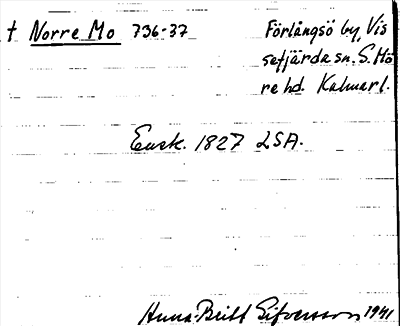 † Norre Mo 736-37 Förlångsö by, Vis
sefjärda sn. S. Mö
re hd. Kalmar l.
Ensk. 1827 LSA.
Anna-Britt Sifversson 1941